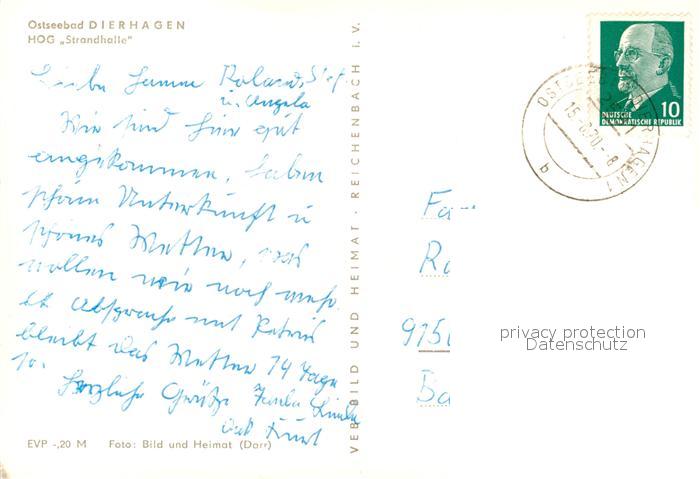 Ostseebad DIERHAGEN
HOG „Strandhalle"
Liebe Hanna Roland,
u. Angela
Wir sind hier gut
angekommen, haben
schöne Unterkunft u
schönes Wetter, was
wollen wir noch mehr.
Lt Absprache mit Petrus
bleibt das Wetter 14 Tage
so.
Herzliche Grüße Familie
und Kurt
EVP -,20 M Foto: Bild und Heimat (Darr)
VEB BILD UND HEIMAT · REICHENBACH I. V.
DEUTSCHE
DEMOKRATISCHE REPUBLIK
10
OSTSEEBAD DIERHAGEN 1
15-6.70-8
b
Fa
Ro
915
Ba
privacy protection
Datenschutz